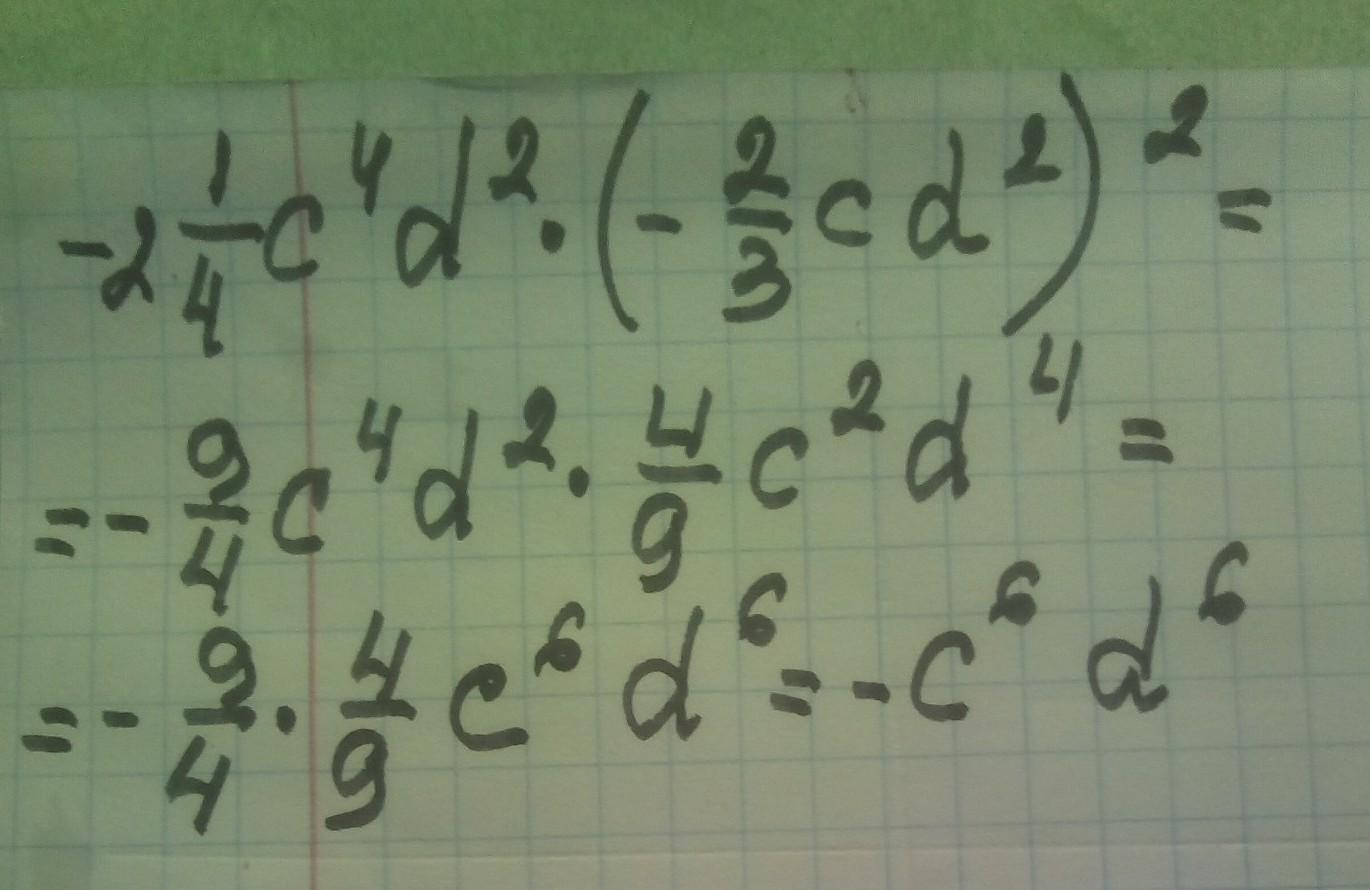 -2 1/4 c⁴d² · (- 2/3 cd²)² =
= - 9/4 c⁴d² · 4/9 c²d⁴ =
= - 9/4 · 4/9 c⁶d⁶ = -c⁶d⁶